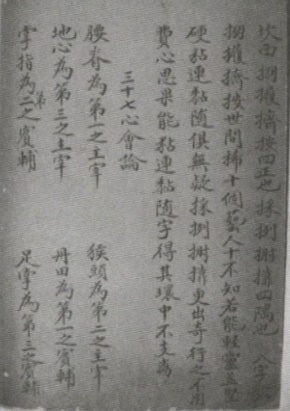 掤攦擠按四正也採挒四隅也 八字
掤攦擠按世間稀十個藝人十不知若能輕靈並堅
硬粘連黏隨俱無疑採挒更出奇行之不用
費心思果能粘連黏隨字得其環中不支
三十七心會論
腰脊為第一之主宰 猴頭為第二之主宰
地心為第三之主宰 丹田為第一之賓輔
掌指為第二之賓輔 足掌為第三之賓輔